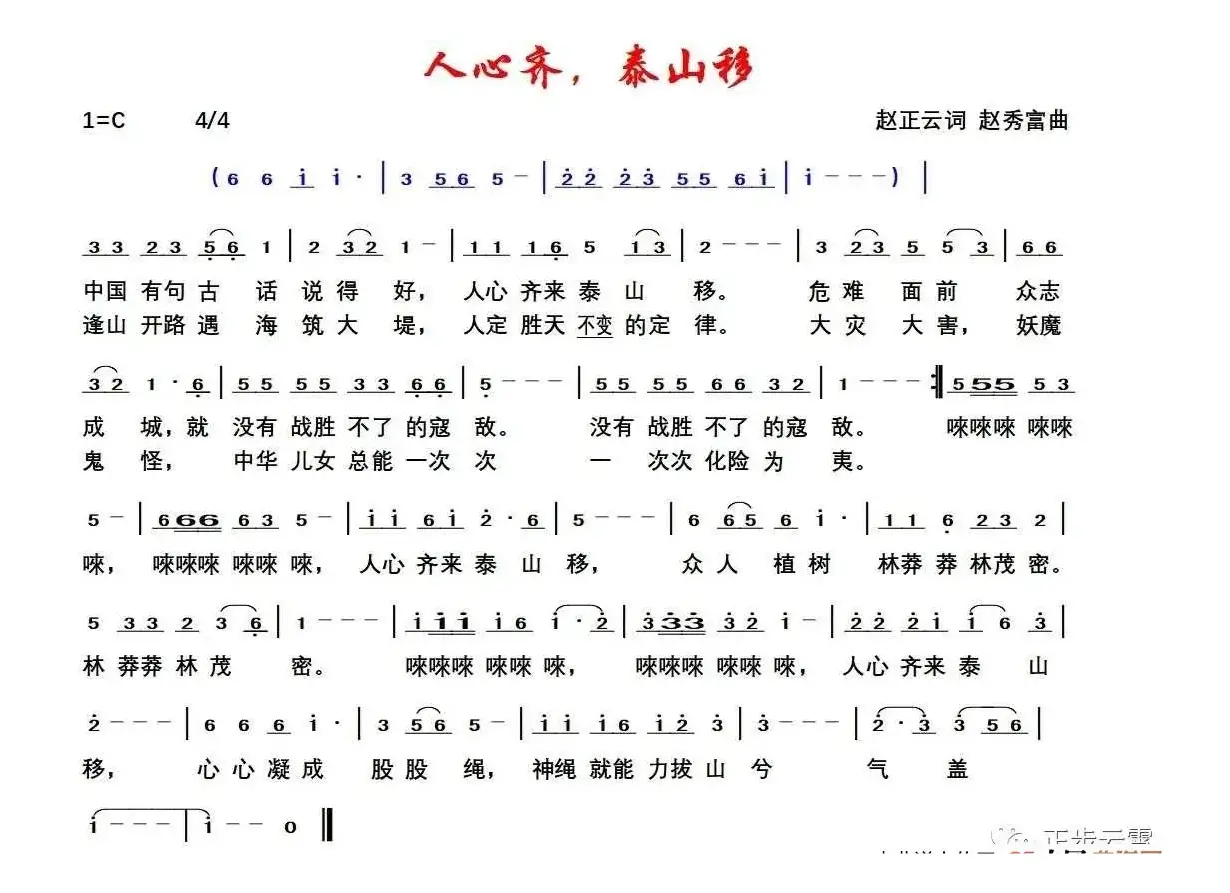 人心齐，泰山移
1=C 4/4 赵正云词 赵秀富曲
( 6 6 i i · | 3 56 5 － | 22 23 55 6i | i － － － ) |
33 23 56 1 | 2 32 1 － | 11 16 5 13 | 2 － － － | 3 23 5 5 3 | 66
中国 有句 古 话 说 得 好， 人心 齐来 泰 山 移。 危 难 面 前 众志
逢山 开路 遇 海 筑 大 堤， 人定 胜天 不变 的定 律。 大 灾 大 害， 妖魔
32 1 · 6 | 55 55 33 66 | 5 － － － | 55 55 66 32 | 1 － － － :| 555 53
成 城，就 没有 战胜 不了 的寇 敌。 没有 战胜 不了 的寇 敌。 唻唻唻 唻唻
鬼 怪， 中华 儿女 总能 一次 次 一 次次 化险 为 夷。
5 － | 666 63 5 － | ii 6i 2 · 6 | 5 － － － | 6 65 6 i · | 11 6 23 2 |
唻， 唻唻唻 唻唻 唻， 人心 齐来 泰 山 移， 众 人 植 树 林莽 莽 林茂 密。
5 33 2 3 6 | 1 － － － | iii i6 i · 2 | 333 32 i － | 22 2i i 6 3 |
林 莽莽 林 茂 密。 唻唻唻 唻唻 唻， 唻唻唻 唻唻 唻， 人心 齐来 泰 山
2 － － － | 6 6 6 i · | 3 56 5 － | ii i6 i2 3 | 3 － － － | 2 · 3 3 56 |
移， 心 心 凝 成 股 股 绳， 神绳 就能 力拔 山 兮 气 盖
i － － － | i － － 0 ‖
正步云霄